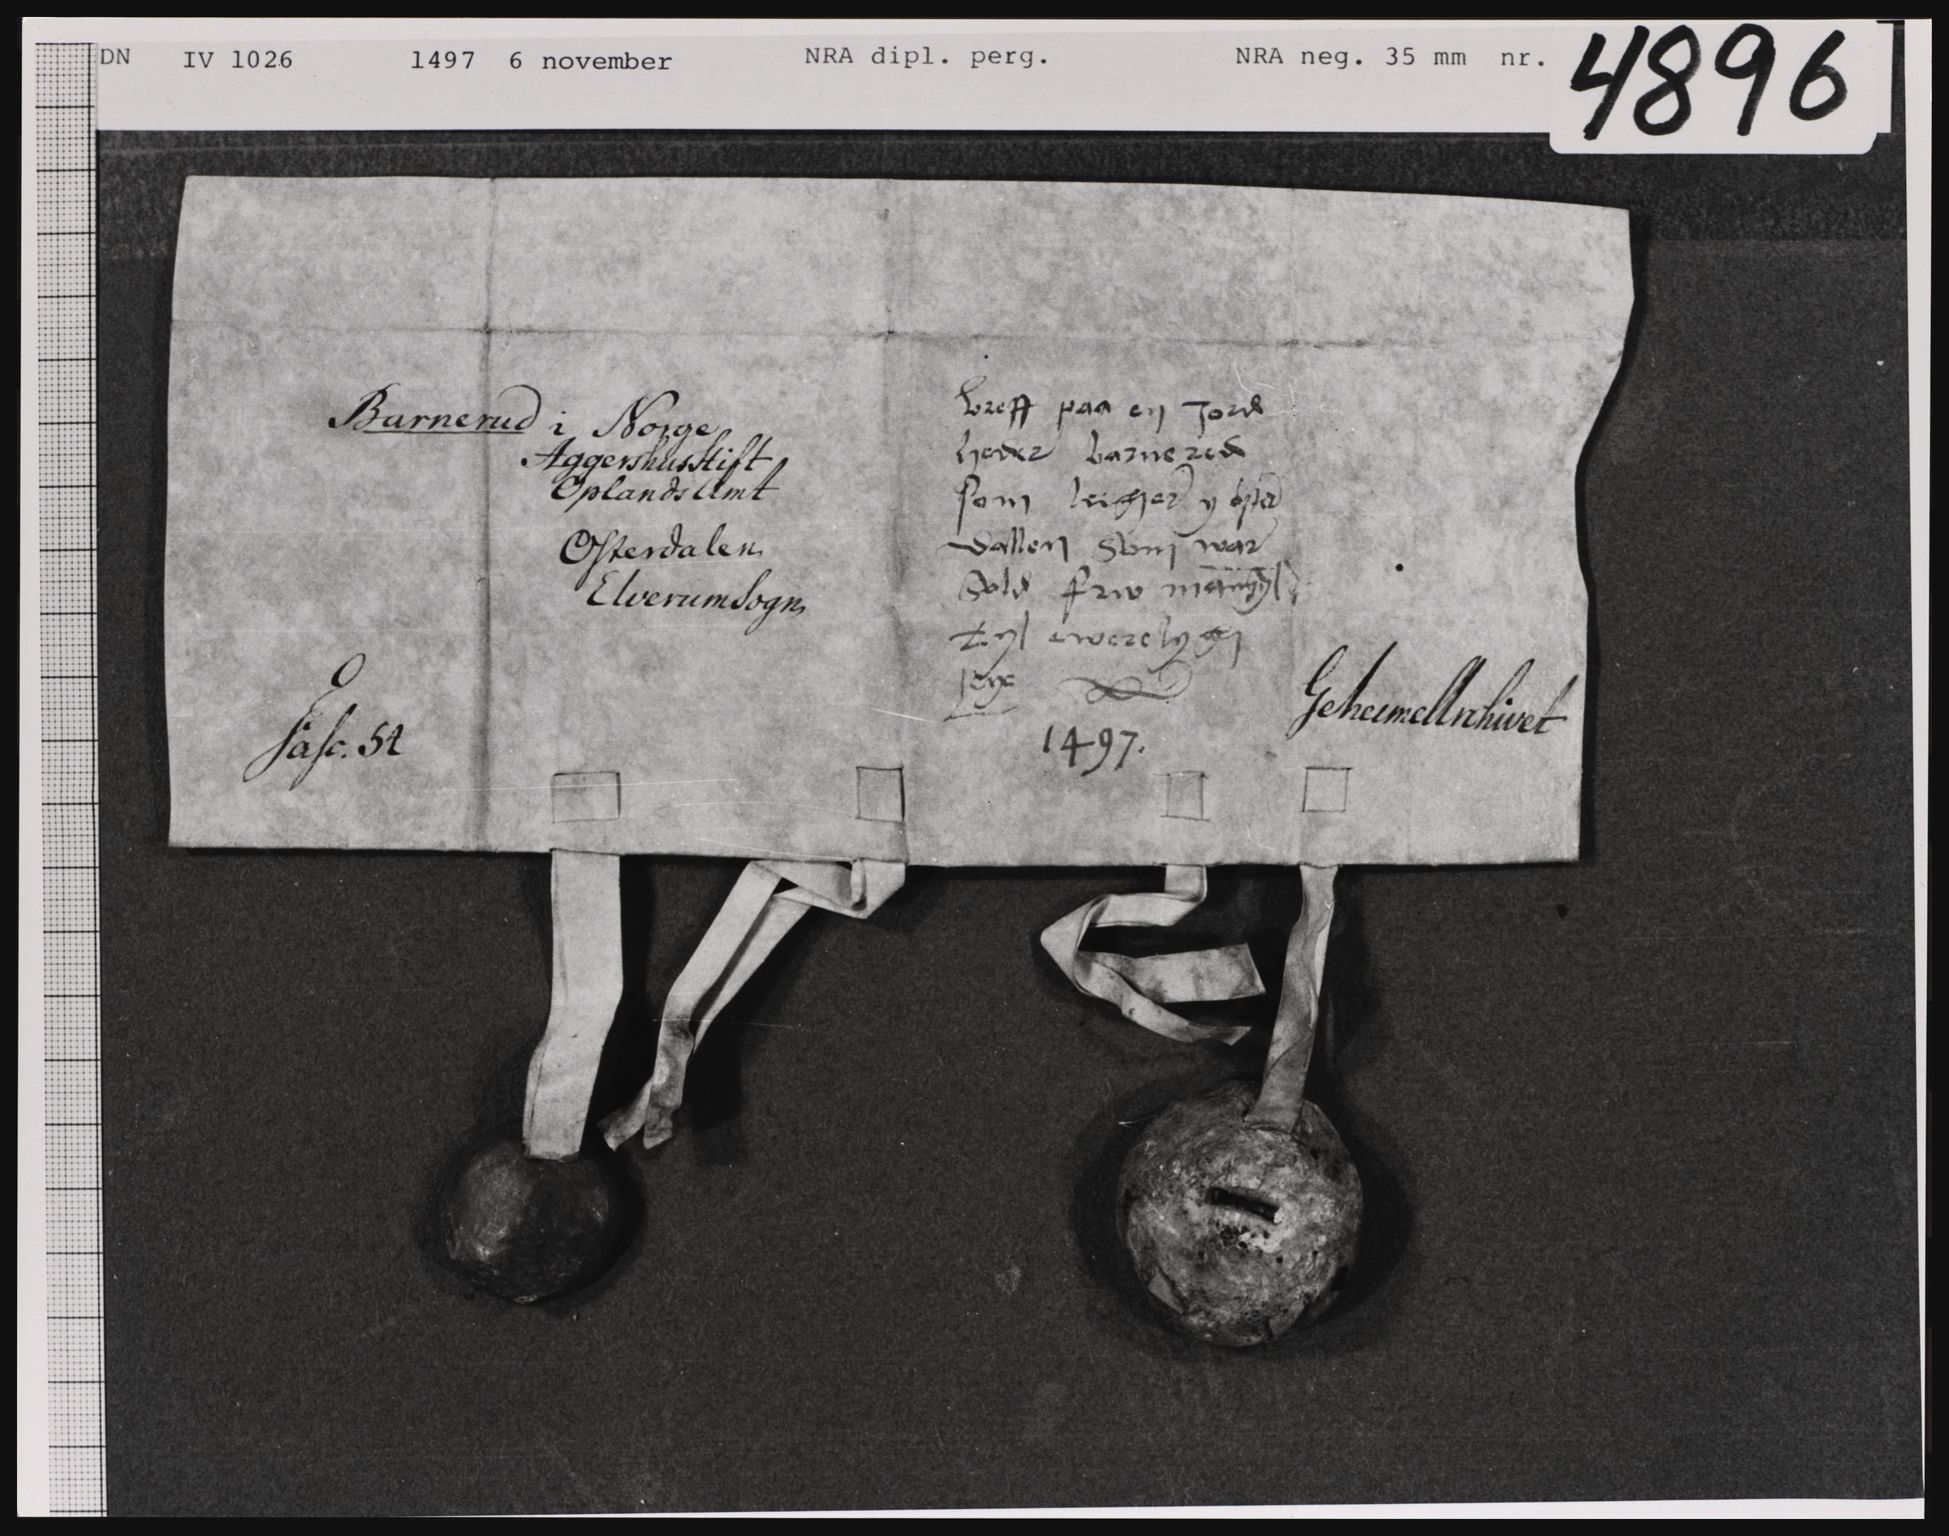 DN IV 1026 1497 6 november NRA dipl. perg. NRA neg. 35 mm nr. 4896
Barnerud i Norge
Aggershus Stift
Oplands Amt
Østerdalen
Elverum Sogn
O
Fasc. 52
breff paa en Jord
heder barnerud
som ligger y øster
dallen som war
Sold frw
tyl ewerelygh
1497.
Geheime Archivet